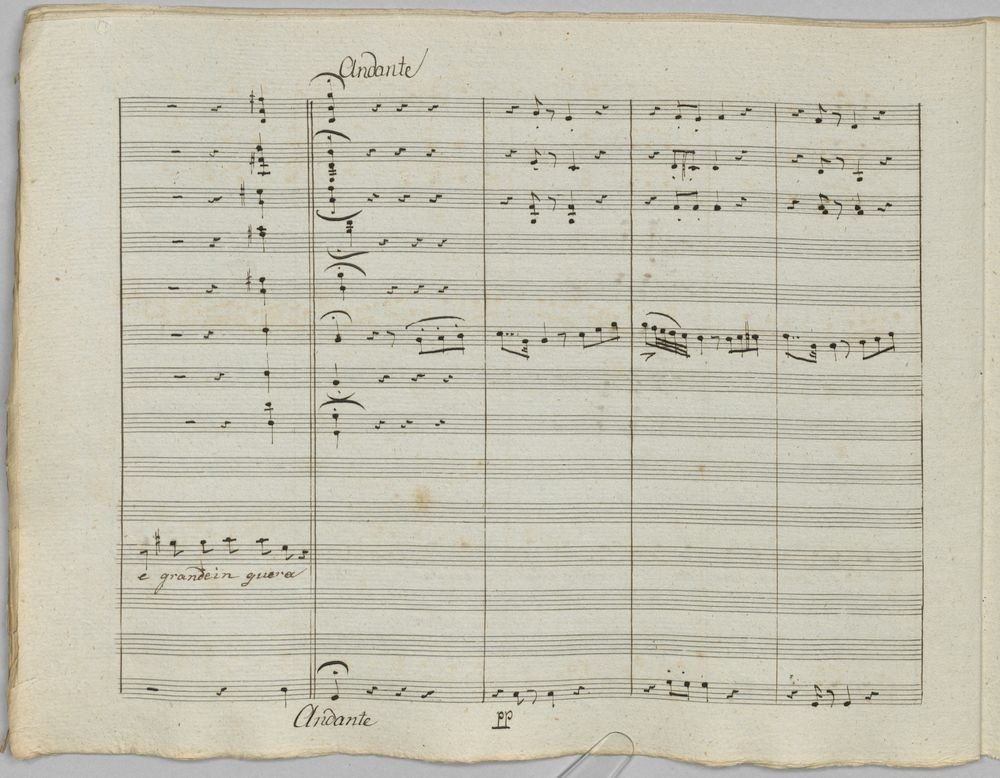 Andante
e grande in guera
Andante
pp